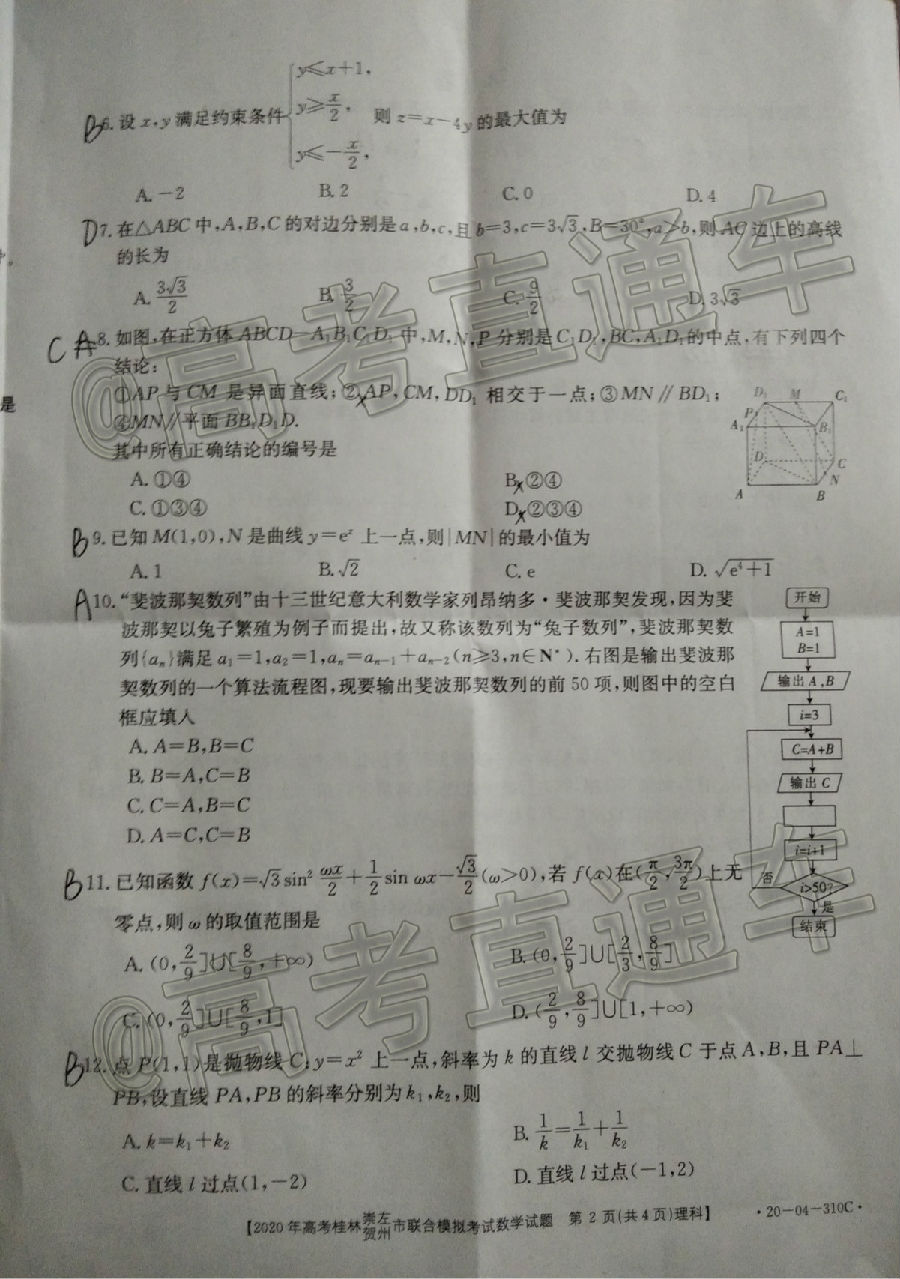 y≤x+1,
B 6. 设 x,y 满足约束条件 y≥x/2, 则 z=x-4y 的最大值为
y≤-x/2,
A. -2 B. 2 C. 0 D. 4
D 7. 在△ABC 中,A,B,C 的对边分别是 a,b,c,且 b=3,c=3√3,B=30°,a>b,则 AC 边上的高线
的长为
A. 3√3/2 B. 3/2 C. 9/2 D. 3√3
C A 8. 如图,在正方体 ABCD-A₁B₁C₁D₁ 中,M,N,P 分别是 C₁D₁,BC,A₁D₁ 的中点,有下列四个
结论:
①AP 与 CM 是异面直线;②AP,CM,DD₁ 相交于一点;③MN∥BD₁;
是
④MN∥平面 BB₁D₁D.
其中所有正确结论的编号是
A. ①④ B. ②④
C. ①③④ D. ②③④
D₁ M C₁
P
A₁ B₁
D C
N
A B
B 9. 已知 M(1,0),N 是曲线 y=eˣ 上一点,则|MN|的最小值为
A. 1 B. √2 C. e D. √(e⁴+1)
A 10. “斐波那契数列”由十三世纪意大利数学家列昂纳多·斐波那契发现,因为斐
波那契以兔子繁殖为例子而提出,故又称该数列为“兔子数列”,斐波那契数
列{aₙ}满足 a₁=1,a₂=1,aₙ=aₙ₋₁+aₙ₋₂(n≥3,n∈N*).右图是输出斐波那
契数列的一个算法流程图,现要输出斐波那契数列的前 50 项,则图中的空白
框应填入
A. A=B,B=C
B. B=A,C=B
C. C=A,B=C
D. A=C,C=B
开始
A=1
B=1
输出 A,B
i=3
C=A+B
输出 C
i=i+1
否
i>50?
是
结束
B 11. 已知函数 f(x)=√3 sin² ωx/2 + 1/2 sin ωx - √3/2 (ω>0),若 f(x)在(π/2,3π/2)上无
零点,则 ω 的取值范围是
A. (0,2/9]∪[8/9,+∞) B. (0,2/9]∪[2/3,8/9]
C. (0,2/9]∪[8/9,1] D. (2/9,8/9]∪[1,+∞)
B 12. 点 P(1,1)是抛物线 C:y=x² 上一点,斜率为 k 的直线 l 交抛物线 C 于点 A,B,且 PA⊥
PB,设直线 PA,PB 的斜率分别为 k₁,k₂,则
A. k=k₁+k₂ B. 1/k=1/k₁+1/k₂
C. 直线 l 过点(1,-2) D. 直线 l 过点(-1,2)
【2020 年高考桂林崇左贺州市联合模拟考试数学试题 第 2 页(共 4 页)理科】 ·20-04-310C·
@高考直通车
@高考直通车